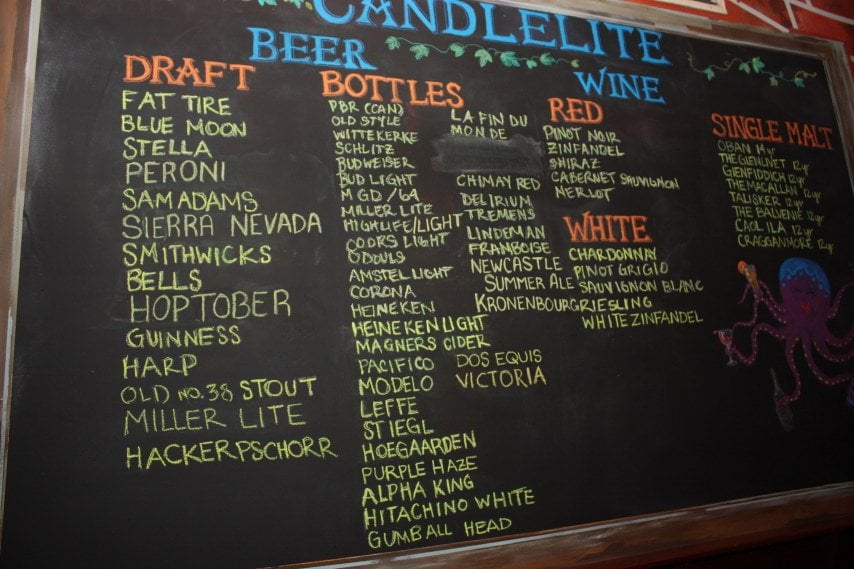 CANDLELITE
BEER
WINE
DRAFT
FAT TIRE
BLUE MOON
STELLA
PERONI
SAM ADAMS
SIERRA NEVADA
SMITHWICKS
BELLS
HOPTOBER
GUINNESS
HARP
OLD NO. 38 STOUT
MILLER LITE
HACKERPSCHORR
BOTTLES
PBR (CAN)
OLD STYLE
WITTEKERKE
SCHLITZ
BUDWEISER
BUD LIGHT
MGD/64
MILLER LITE
HIGHLIFE/LIGHT
COORS LIGHT
ODOULS
AMSTEL LIGHT
CORONA
HEINEKEN
HEINEKEN LIGHT
MAGNERS CIDER
PACIFICO
MODELO
LEFFE
STIEGL
HOEGAARDEN
PURPLE HAZE
ALPHA KING
HITACHINO WHITE
GUMBALL HEAD
LA FIN DU
MONDE
CHIMAY RED
DELIRIUM
TREMENS
LINDEMAN
FRAMBOISE
NEWCASTLE
SUMMER ALE
KRONENBOURG
DOS EQUIS
VICTORIA
RED
PINOT NOIR
ZINFANDEL
SHIRAZ
CABERNET SAUVIGNON
MERLOT
WHITE
CHARDONNAY
PINOT GRIGIO
SAUVIGNON BLANC
RIESLING
WHITE ZINFANDEL
SINGLE MALT
OBAN 14yr
THE GLENLIVET 12yr
GLENFIDDICH 12yr
THE MACALLAN 12yr
TALISKER 12yr
THE BALVENIE 12yr
CAOL ILA 12yr
CRAGGANMORE 12yr